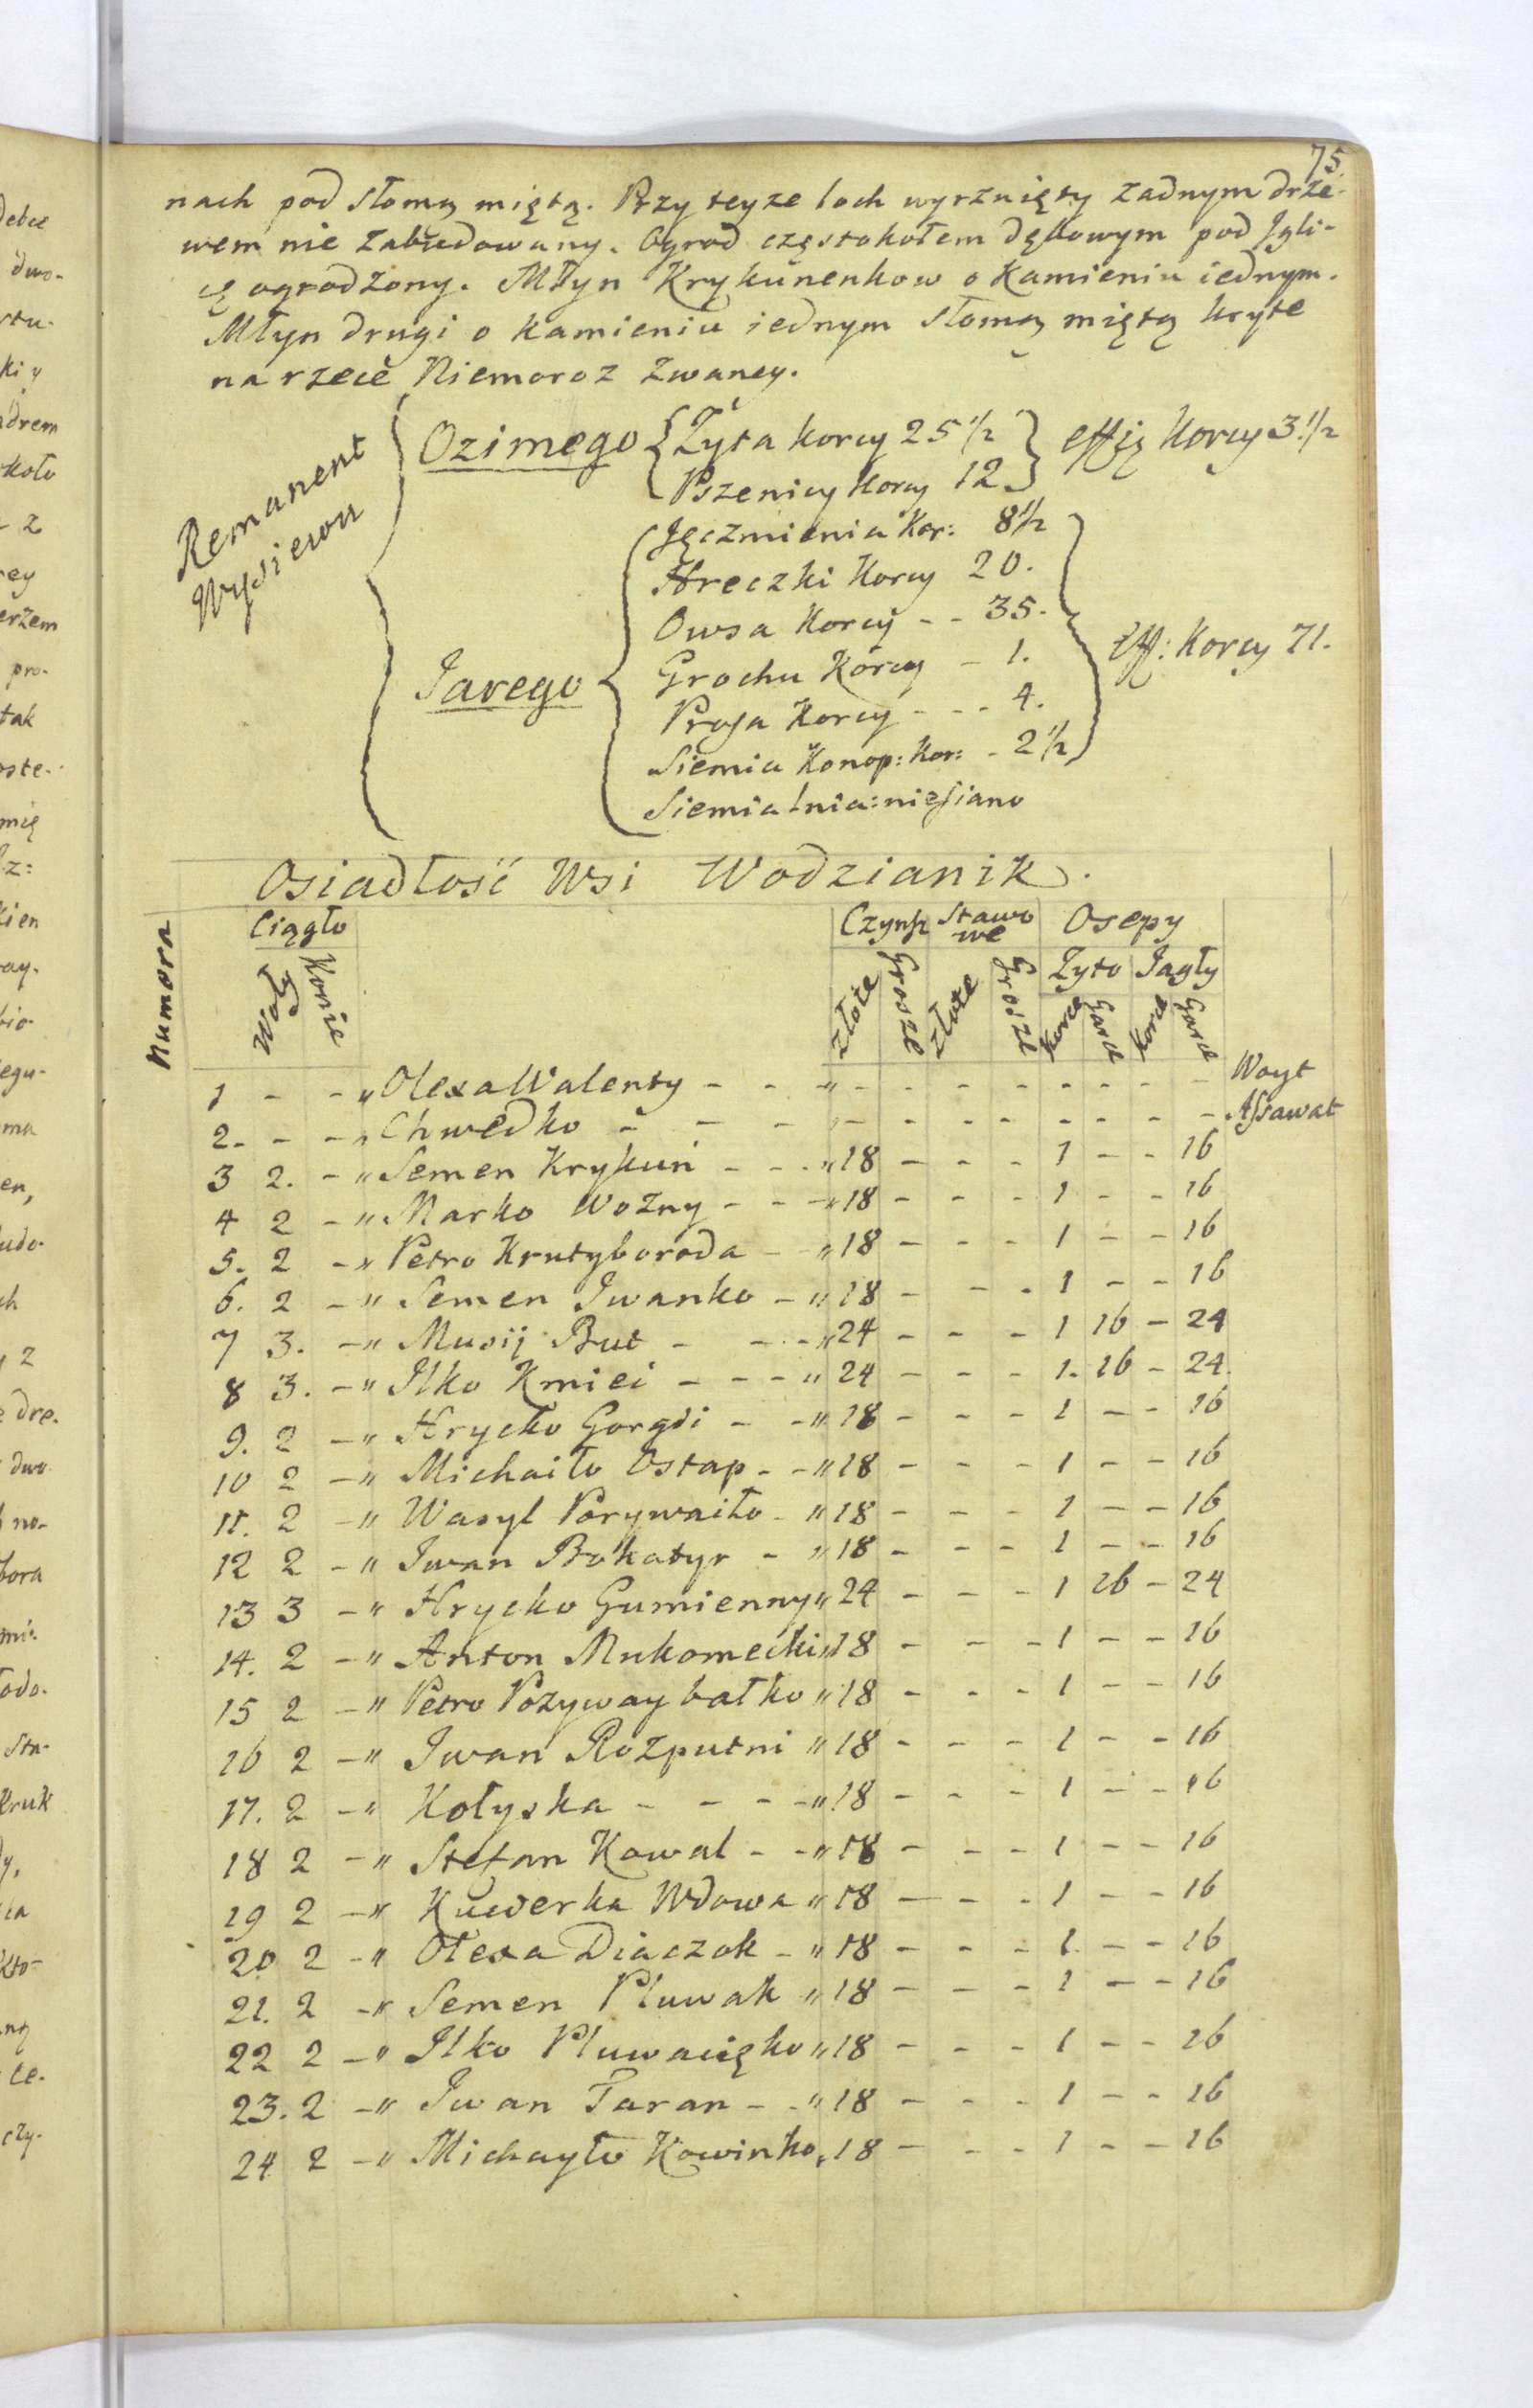 75
nach pod słomą miętą. Przy teyze loch wyrznięty zadnym drze-
wem nie zabudowany. Ogrod częstokołem dębowym pod Igli-
cą ogrodzony. Młyn Krykunenkow o Kamieniu iednym.
Młyn drugi o Kamieniu iednym słomą miętą kryte
na rzece Niemoroz zwaney.
Remanent
Wysiewu
Ozimego Żyta korcy 25 1/2 effię Korcy 3.1/2
Pszenicy Korcy 12
Jęczmienia Kor: 8 1/2
Hreczki Korcy 20.
Owsa Korcy - - 35.
Jarego Grochu Korcy - 1. Eff: Korcy 71.
Prosa Korcy - - - 4.
Siemia Konop: Kor: - 2 1/2
Siemia lnia: niesiano
Osiadłość Wsi Wodzianik.
Numora Ciągło Czynsz Stawo we Osepy
Woły Konie Złote Grosze Złote Grosze Żyto Jagły
Korce Garce Korce Garce
1 - - " Olexa Walenty - - " - - - - - - - - Woyt
2. - - " Chwedko - - - - - - - - - - - Assawat
3 2. - " Semen Krykun - - - " 18 - - - 1 - - 16
4 2 - " Marko Wozny - - - " 18 - - - 1 - - 16
5. 2 - " Petro Krutyboroda - " 18 - - - 1 - - 16
6. 2 - " Semen Iwanko - " 18 - - - 1 - - 16
7 3. - " Musij But - - - " 24 - - - 1 16 - 24
8 3. - " Ilko Kmieć - - - " 24 - - - 1. 16 - 24.
9. 2 - " Hrycko Gorgdi - - " 18 - - - 1 - - 16
10 2 - " Michaiło Ostap - - " 18 - - - 1 - - 16
11. 2 - " Wasyl Porywaiło - " 18 - - - 1 - - 16
12 2 - " Iwan Bohatyr - " 18 - - - 1 - - 16
13 3 - " Hrycko Gumienny " 24 - - - 1 16 - 24
14. 2 - " Anton Mukomecki " 18 - - - 1 - - 16
15 2 - " Petro Pozyway batko " 18 - - - 1 - - 16
16 2 - " Iwan Rozputni " 18 - - - 1 - - 16
17. 2 - " Kołyska - - - - " 18 - - - 1 - - 16
18 2 - " Stefan Kowal - - " 18 - - - 1 - - 16
19 2 - " Kuwerka Wdowa " 18 - - - 1 - - 16
20 2 - " Olexa Diaczok - " 18 - - - 1 - - 16
21. 2 - " Semen Pluwak " 18 - - - 1 - - 16
22 2 - " Ilko Pluwacięko " 18 - - - 1 - - 16
23. 2 - " Iwan Taran - - " 18 - - - 1 - - 16
24 2 - " Michayło Kowinko " 18 - - - 1 - - 16